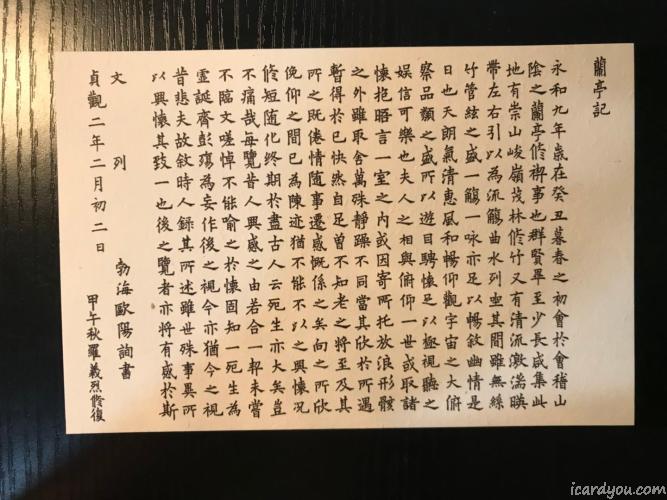 蘭亭記
永和九年歲在癸丑暮春之初會於會稽山
陰之蘭亭修禊事也群賢畢至少長咸集此
地有崇山峻嶺茂林修竹又有清流激湍暎
帶左右引以為流觴曲水列坐其間雖無絲
竹管絃之盛一觴一咏亦足以暢敘幽情是
日也天朗氣清惠風和暢仰觀宇宙之大俯
察品類之盛所以遊目騁懷足以極視聽之
娱信可樂也夫人之相與俯仰一世或取諸
懷抱晤言一室之內或因寄所托放浪形骸
之外雖取舍萬殊靜躁不同當其欣於所遇
暫得於己快然自足曾不知老之將至及其
所之既倦情隨事遷感慨係之矣向之所欣
俛仰之間已為陳迹猶不能不以之興懷況
修短随化終期於盡古人云死生亦大矣豈
不痛哉每覽昔人興感之由若合一契未嘗
不臨文嗟悼不能喻之於懷固知一死生為
虛誕齊彭殤為妄作後之視今亦猶今之視
昔悲夫故敘時人錄其所述雖世殊事異所
以興懷其致一也後之覽者亦將有感於斯
文 列 勃海歐陽詢書
貞觀二年二月初二日 甲午秋羅義烈修復
icardyou.com